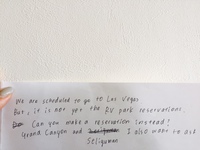 We are scheduled to go to Las Vegas
But, it is not yet the RV park reservations.
Can you make a reservation instead?
Grand Canyon and I also want to ask
Seligman